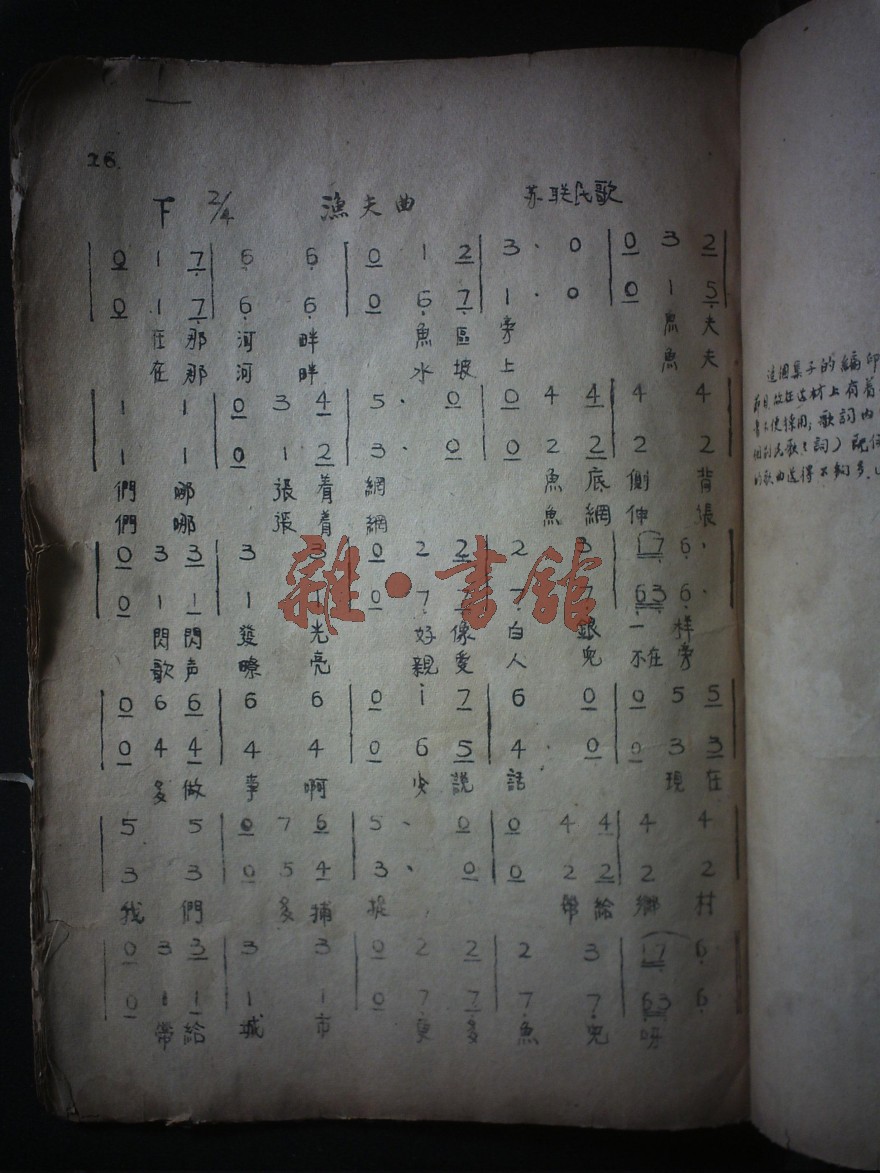 26.
下 2/4 漁夫曲 苏联民歌
0 1 7 | 6 6 | 0 1 2 | 3 · 0 | 0 3 2
0 1 7 | 6 6 | 0 6 7 | 1 · 0 | 0 1 5
在那河畔 魚區旁 魚夫
在那河畔 水坡上 魚夫
1 1 | 0 3 4 | 5 · 0 | 0 4 4 | 4 4
1 1 | 0 1 2 | 3 · 0 | 0 2 2 | 2 2
們哪 張着網 魚底側背
們哪 張着網 魚網伸張
0 3 3 | 3 3 | 0 2 2 | 2 3 | 17 6 ·
0 1 1 | 1 1 | 0 7 7 | 7 7 | 63 6 ·
閃閃發光 好像白銀一样
歌声嘹亮 親愛人兒不在旁
0 6 6 | 6 6 | 0 i 7 | 6 0 | 0 5 5
0 4 4 | 4 4 | 0 6 5 | 4 · 0 | 0 3 3
多做事啊 少說話 現在
5 5 | 0 7 6 | 5 · 0 | 0 4 4 | 4 4
3 3 | 0 5 4 | 3 · 0 | 0 2 2 | 2 2
我們 多捕捉 帶給鄉村
0 3 3 | 3 3 | 0 2 2 | 2 3 | 17 6
0 1 1 | 1 1 | 0 7 7 | 7 7 | 63 6
帶給城市 更多魚兒呀
雜·書館
這個集子的編印
材上有着
使採用，歌詞內
民歌（詞）配
的歌曲选得不夠多